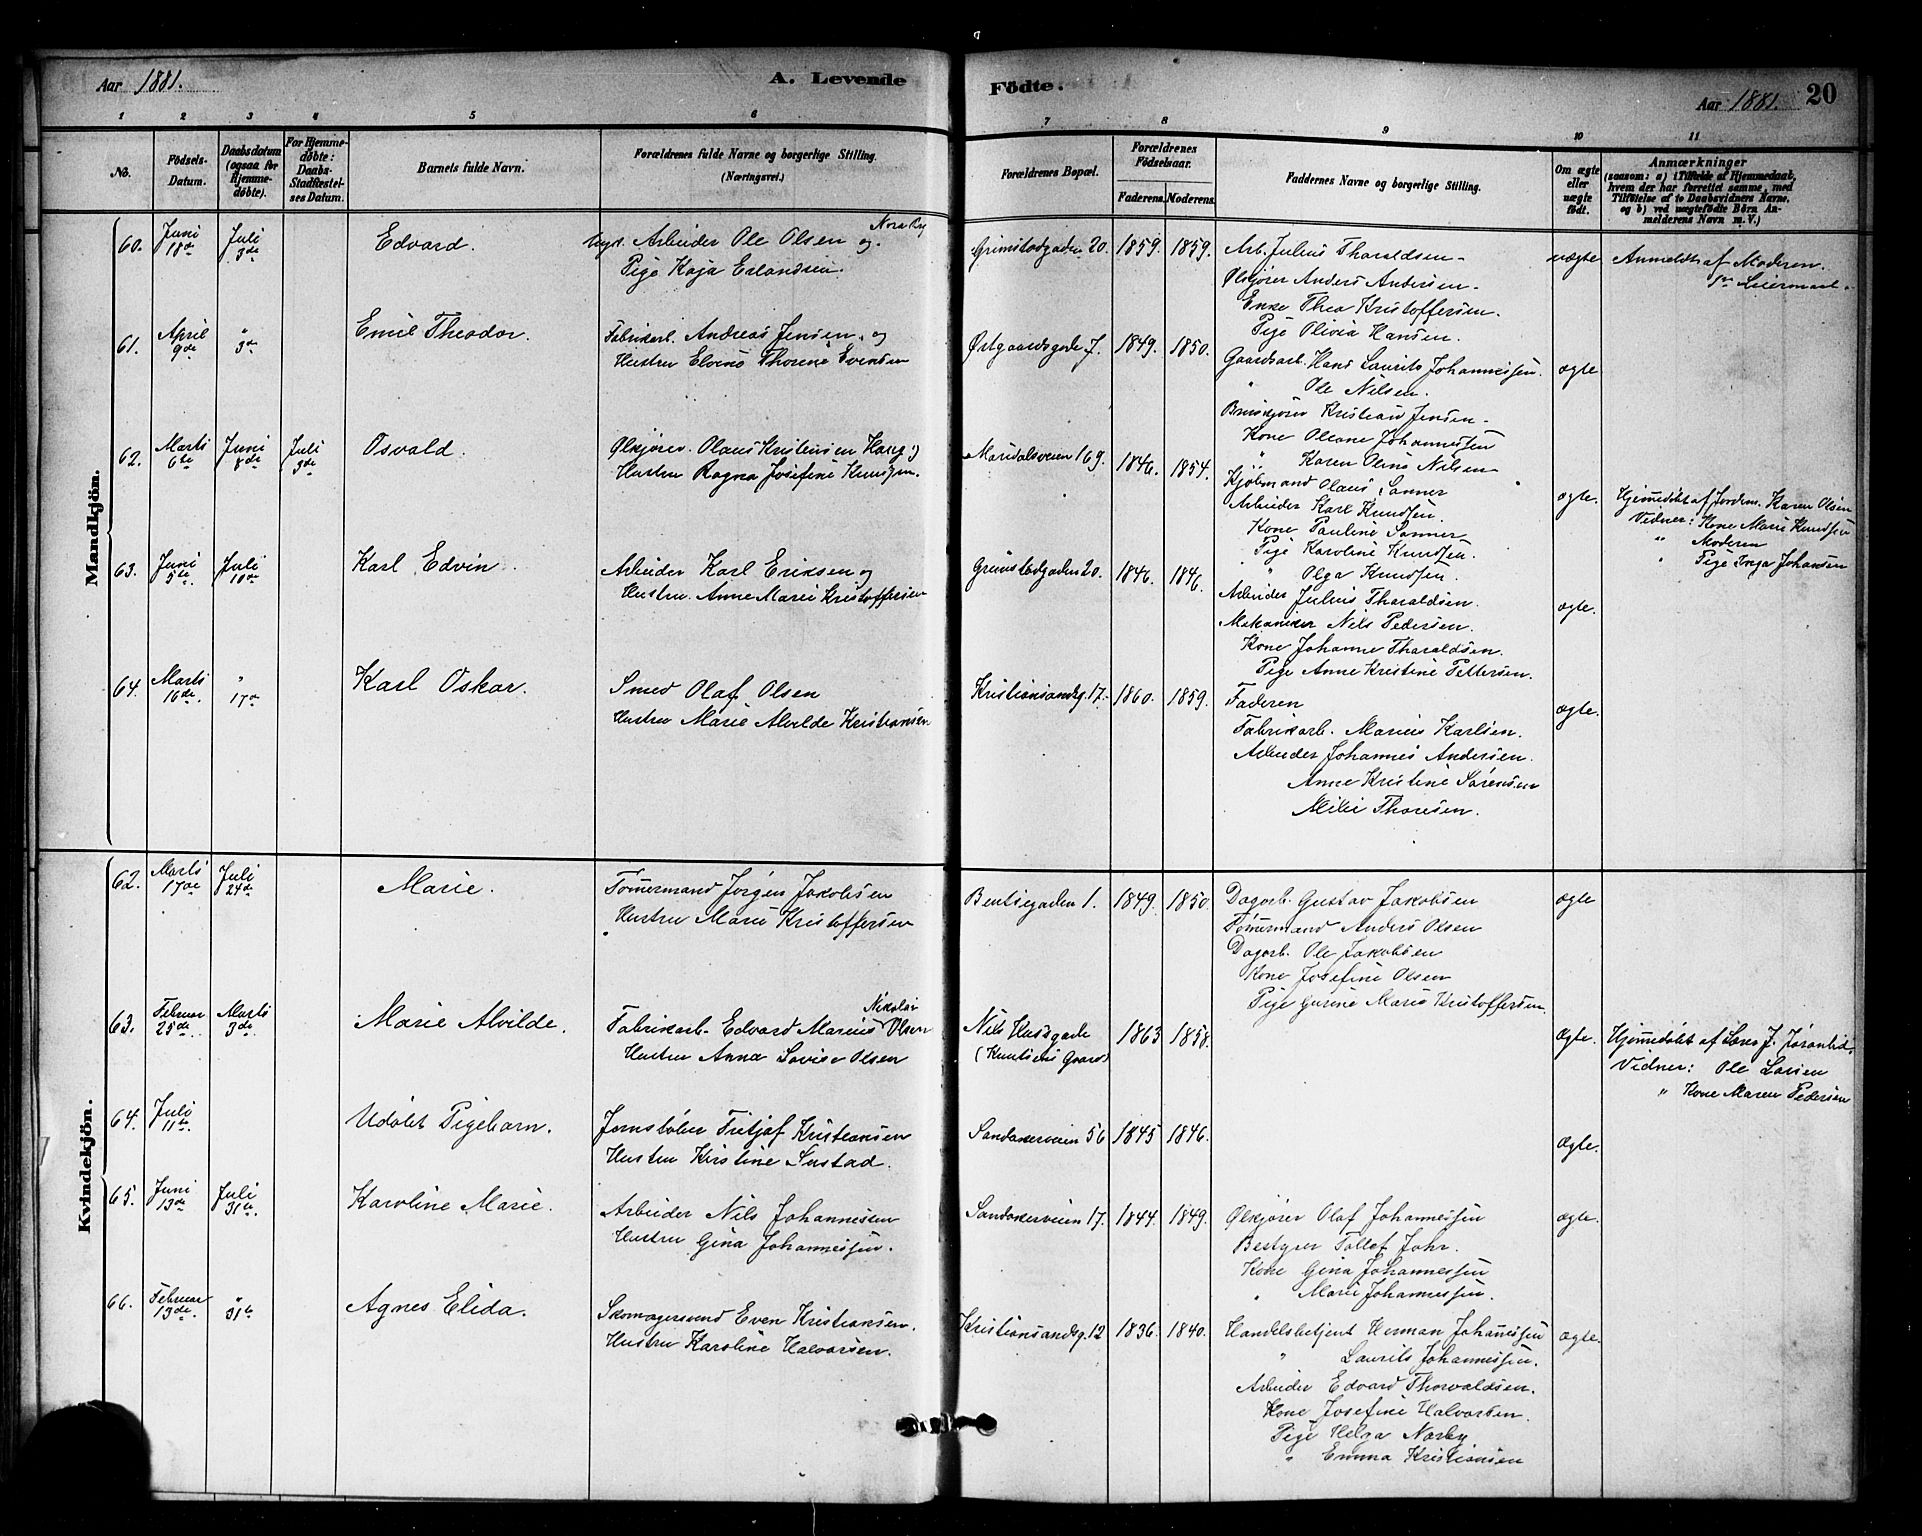 Aar 1881.
A. Levende
Födte.
Aar 1881. 20
1 2 3 4 5 6 7 8 9 10 11
No.
Födsels-Datum.
Daabsdatum (ogsaa for Hjemmedøbte).
For Hjemmedøbte: Daabs-Stadfæstelses Datum.
Barnets fulde Navn.
Forældrenes fulde Navne og borgerlige Stilling.
(Næringsvei.)
Forældrenes Bopæl.
Forældrenes Födselsaar.
Faderens. Moderens.
Faddernes Navne og borgerlige Stilling.
Om ægte eller uægte födt.
Anmærkninger
(saasom: a) i Tilfælde af Hjemmedaab,
hvem der har forrettet samme, med
Tilföielse af to Daabsvidners Navne,
og b) ved uægtefödte Börn An-
melderens Navn m. V.)
Mandkjön.
60. Juni 18de Juli 3de Edvard. Ugs. Arbeider Ole Olsen og
Pige Kaja Erlandsen.
Grimstadgaden 20. 1859. 1859.
Arb. Julius Tharaldsen.
Ølkjører Anders Andersen.
Enke Thea Kristoffersen.
Pige Olivia Hansen.
uægte Anmeldt af Moderen.
61. April 9de " 3de Emil Theodor. Fabrikarb. Andreas Jensen. og
Hustru Thorine Evensen
Østgaardsgade 7. 1849. 1850.
Gaardsarb. Hans Laurits Johannessen.
" Ole Nilsen.
Kristian Jensen.
Kone Oleane Johannessen
" Karen Nilsen
ægte
62. Marts 6te Juni 8de Juli 3de Osvald. Ølkjører. Olaus Kristensen Haug og
Hustru Ragna Josefine Knudsen.
Maridalsveien 169. 1846. 1854.
Kjøbmand Olaus Sanner
Arbeider Karl Knudsen.
Kone Pauline Sanner
Pige Karoline Knudsen.
" Olga Knudsen.
ægte. Hjemmedøbt af Jordem. Karen Olsen
Vidner: Kone Marie Knudsen
" Moderen
" Pige Inga Johansen
63. Juni 5te Juli 10de Karl Edvin. Arbeider Karl Eriksen og
Hustru. Anne Marie Kristoffersen
Grimstadgaden 20. 1846. 1846.
Arbeider Julius Tharaldsen.
Mekaniker Nils Pedersen.
Kone Johanne Tharaldsen.
Pige Anne Kristine Pettersen.
ægte.
64. Marts 16de. " 17de Karl Oskar. Smed Olaf Olsen
Hustru Marie Alvilde Kristiansen
Kristiansandsg. 17. 1860. 1859.
Faderen
Fabrikarb. Marius Karlsen.
Arbeider Johannes Andersen.
Anne Kristine Sørensen
Milie Thoresen.
ægte.
Kvindekjön.
62. Marts 17de Juli 24de Marie. Tømmermand Jørgen Jakobsen
Hustru Marie Kristoffersen
Bentsegaden 1. 1849. 1850.
Dagarb. Gustav Jakobsen
Tømmermand Anders Olsen
Dagarb. Ole Jakobsen
Kone Josefine Olsen
Pige Gurine Marie Kristoffersen
ægte
63. Februar 25de. Marts 3de. Marie Alvilde. Fabrikarb. Edvard Marius Nikolai Olsen
Hustru Anna Lovise Olsen
Nils Husgade
(Knutsens Gaard)
1863 1858.
ægte. Hjemmedøbt af
Vidner: Ole Larsen
" Kone Maren Pedersen
64. Juli 11te. Udøbt Pigebarn. Jernstøber Fritjof Kristiansen
Hustru Kirstine Sustad.
Sandakerveien 56 1845 1846.
ægte.
65. Juni 13de Juli 31te. Karoline Marie. Arbeider Nils Johannessen
Hustru Gina Johannessen.
Sandakerveien 17. 1844. 1849.
Ølkjører Olaf Johannessen
Bestyrer Tollef Johr.
Kone Gina Johannessen
" Marie Johannessen.
ægte.
66. Februar 13de. " 31te Agnes Elida. Skomagersvend Even Kristiansen.
Hustru Karoline Halvorsen.
Kristiansandsg. 12 1836. 1840.
Handelsbetjent Herman Johannessen
" Laurits Johannessen.
Arbeider Edvard Thorvaldsen.
Kone Josefine Halvorsen.
Pige Helga Nærby
" Emma Kristiansen
ægte.